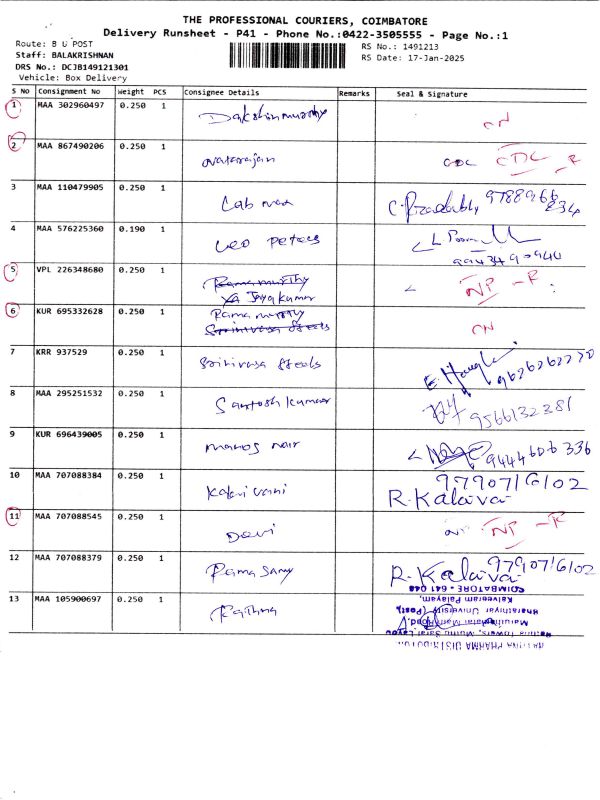 THE PROFESSIONAL COURIERS, COIMBATORE
Delivery Runsheet - P41 - Phone No.:0422-3505555 - Page No.:1
Route: B U POST
RS No.: 1491213
Staff: BALAKRISHNAN
RS Date: 17-Jan-2025
DRS No.: DCJB149121301
Vehicle: Box Delivery
S No Consignment No Weight PCS Consignee Details Remarks Seal & Signature
1 MAA 302960497 0.250 1 Dakshinmurthy CN
2 MAA 867490206 0.250 1 Natarajan CDC CDC -R
3 MAA 110479905 0.250 1 Lab
4 MAA 576225360 0.190 1 Leo Peters
9943490940
5 VPL 226348680 0.250 1 Ramamurthy NP -R
Jayakumar
6 KUR 695332628 0.250 1 Ramamurthy CN
Srinivasa Steels
7 KRR 937529 0.250 1 Srinivasa Steels
8 MAA 295251532 0.250 1 Santosh Kumar 9566132381
9 KUR 696439005 0.250 1 Manos Nair 9444606336
10 MAA 707088384 0.250 1 Kalai Vani 9790716102
R. Kalaiva
11 MAA 707088545 0.250 1 Devi NP NP -R
12 MAA 707088379 0.250 1 Rama Samy R. Kalaiva 9790716102
13 MAA 105900697 0.250 1 Rathna
COIMBATORE - 641 046
Kalveeram Palayam,
Bharathiyar University (Post),
Maruthamalai Main Road,